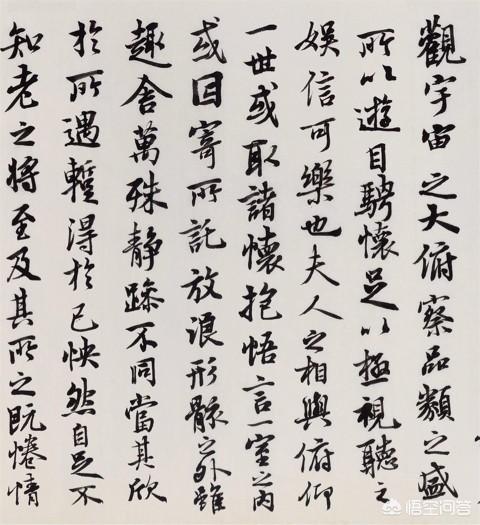 觀宇宙之大俯察品類之盛
所以遊目騁懷足以極視聽之
娛信可樂也夫人之相與俯仰
一世或取諸懷抱悟言一室之內
或因寄所託放浪形骸之外雖
趣舍萬殊靜躁不同當其欣
於所遇暫得於己怏然自足不
知老之將至及其所之既惓情
悟空问答